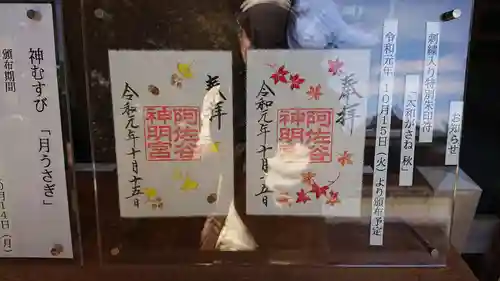 お知らせ
刺繍入り特別朱印付
「大和がさね 秋」
令和元年 10月15日（火）より頒布予定
奉拝
阿佐ヶ谷
神明宮
令和元年十月十五日
奉拝
阿佐ヶ谷
神明宮
令和元年十月十五日
神むすび「月うさぎ」
頒布期間
0月14日（月）